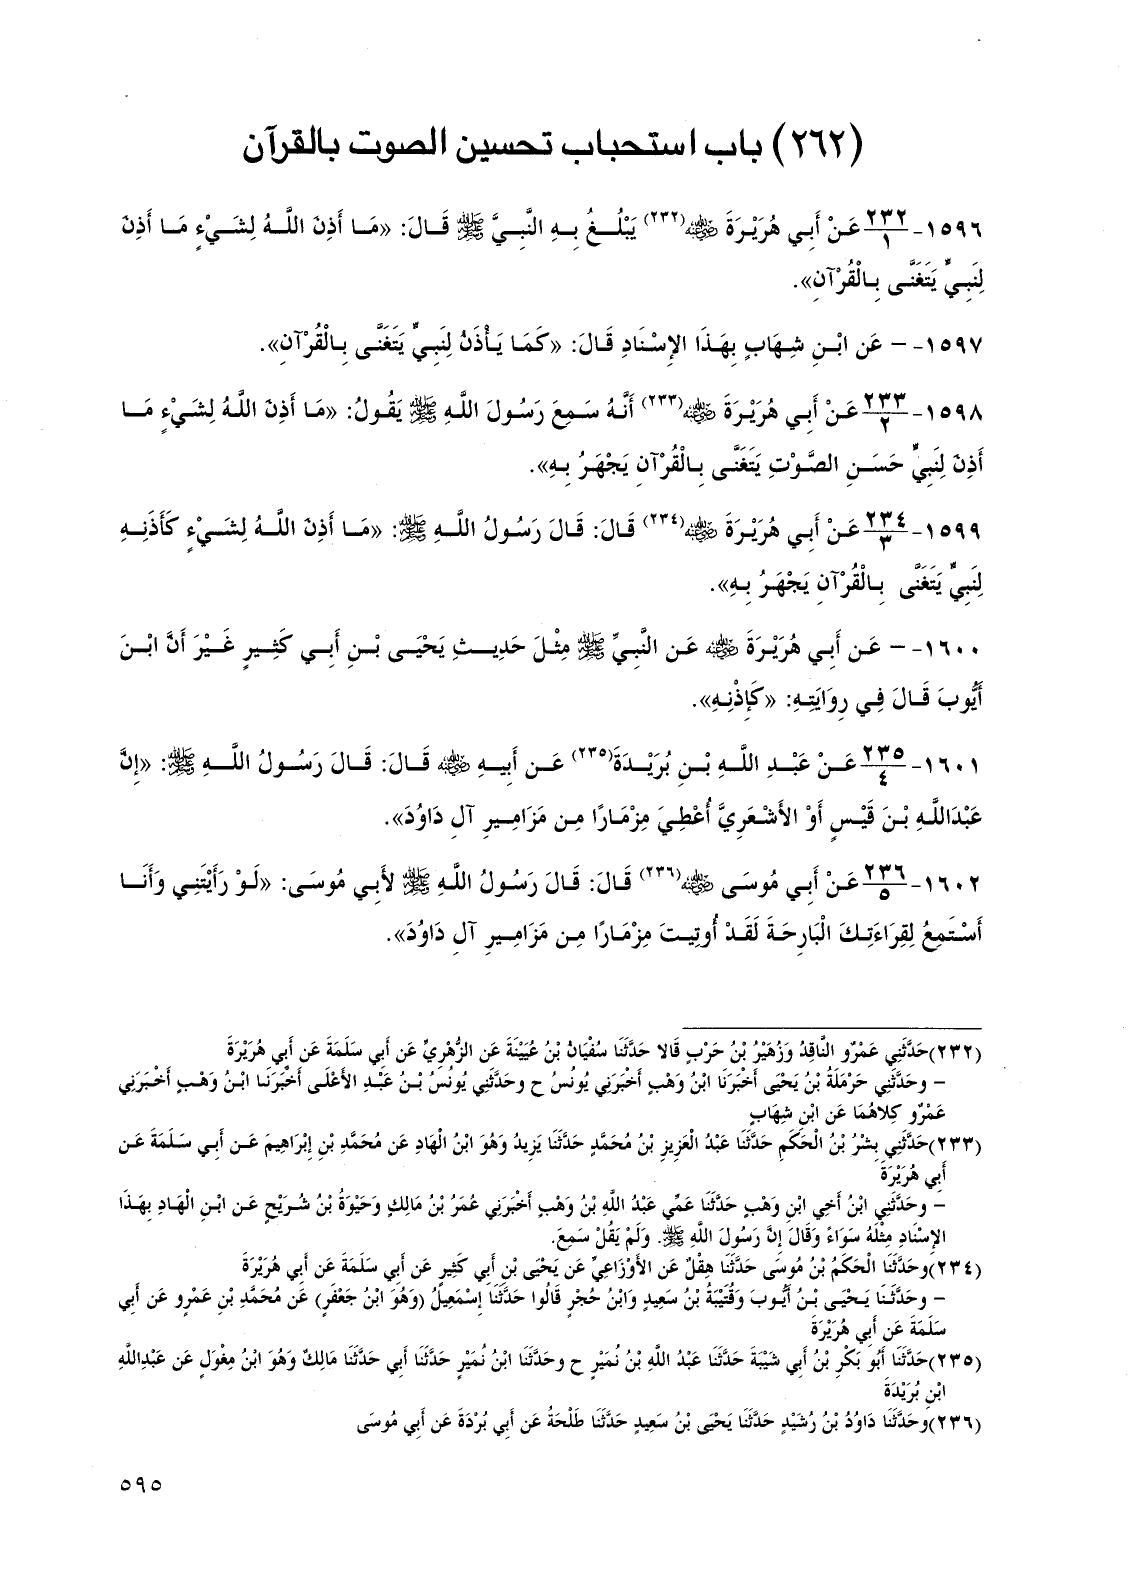 (٢٦٢) باب استحباب تحسين الصوت بالقرآن
١٥٩٦- ٢٣٢/١ عَنْ أَبِي هُرَيْرَةَ ﵁(٢٣٢) يَبْلُغُ بِهِ النَّبِيَّ ﷺ قَالَ: «مَا أَذِنَ اللَّهُ لِشَيْءٍ مَا أَذِنَ
لِنَبِيٍّ يَتَغَنَّى بِالْقُرْآنِ».
١٥٩٧- – عَن ابْنِ شِهَابٍ بِهَذَا الإِسْنَادِ قَالَ: «كَمَا يَأْذَنُ لِنَبِيٍّ يَتَغَنَّى بِالْقُرْآنِ».
١٥٩٨- ٢٣٣/٢ عَنْ أَبِي هُرَيْرَةَ ﵁(٢٣٣) أَنَّهُ سَمِعَ رَسُولَ اللَّهِ ﷺ يَقُولُ: «مَا أَذِنَ اللَّهُ لِشَيْءٍ مَا
أَذِنَ لِنَبِيٍّ حَسَنِ الصَّوْتِ يَتَغَنَّى بِالْقُرْآنِ يَجْهَرُ بِهِ».
١٥٩٩- ٢٣٤/٣ عَنْ أَبِي هُرَيْرَةَ ﵁(٢٣٤) قَالَ: قَالَ رَسُولُ اللَّهِ ﷺ: «مَا أَذِنَ اللَّهُ لِشَيْءٍ كَأَذَنِهِ
لِنَبِيٍّ يَتَغَنَّى بِالْقُرْآنِ يَجْهَرُ بِهِ».
١٦٠٠- – عَن أَبِي هُرَيْرَةَ ﵁ عَن النَّبِيِّ ﷺ مِثْلَ حَدِيثِ يَحْيَى بْنِ أَبِي كَثِيرٍ غَيْرَ أَنَّ ابْنَ
أَيُّوبَ قَالَ فِي رِوَايَتِهِ: «كَإِذْنِهِ».
١٦٠١- ٢٣٥/٤ عَنْ عَبْدِ اللَّهِ بْنِ بُرَيْدَةَ(٢٣٥) عَن أَبِيهِ ﵁ قَالَ: قَالَ رَسُولُ اللَّهِ ﷺ: «إِنَّ
عَبْدَاللَّهِ بْنَ قَيْسٍ أَوْ الأَشْعَرِيَّ أُعْطِيَ مِزْمَارًا مِن مَزَامِيرِ آلِ دَاوُدَ».
١٦٠٢- ٢٣٦/٥ عَنْ أَبِي مُوسَى ﵁(٢٣٦) قَالَ: قَالَ رَسُولُ اللَّهِ ﷺ لأَبِي مُوسَى: «لَوْ رَأَيْتَنِي وَأَنَا
أَسْتَمِعُ لِقِرَاءَتِكَ الْبَارِحَةَ لَقَدْ أُوتِيتَ مِزْمَارًا مِن مَزَامِيرِ آلِ دَاوُدَ».
(٢٣٢)حَدَّثَنِي عَمْرٌو النَّاقِدُ وَزُهَيْرُ بْنُ حَرْبٍ قَالا حَدَّثَنَا سُفْيَانُ بْنُ عُيَيْنَةَ عَن الزُّهْرِيِّ عَن أَبِي سَلَمَةَ عَن أَبِي هُرَيْرَةَ
– وحَدَّثَنِي حَرْمَلَةُ بْنُ يَحْيَى أَخْبَرَنَا ابْنُ وَهْبٍ أَخْبَرَنِي يُونُسُ ح وحَدَّثَنِي يُونُسُ بْنُ عَبْدِ الأَعْلَى أَخْبَرَنَا ابْنُ وَهْبٍ أَخْبَرَنِي
عَمْرٌو كِلاهُمَا عَن ابْنِ شِهَابٍ
(٢٣٣)حَدَّثَنِي بِشْرُ بْنُ الْحَكَمِ حَدَّثَنَا عَبْدُ الْعَزِيزِ بْنُ مُحَمَّدٍ حَدَّثَنَا يَزِيدُ وَهُوَ ابْنُ الْهَادِ عَن مُحَمَّدِ بْنِ إِبْرَاهِيمَ عَن أَبِي سَلَمَةَ عَن
أَبِي هُرَيْرَةَ
– وحَدَّثَنِي ابْنُ أَخِي ابْنِ وَهْبٍ حَدَّثَنَا عَمِّي عَبْدُ اللَّهِ بْنُ وَهْبٍ أَخْبَرَنِي عُمَرُ بْنُ مَالِكٍ وَحَيْوَةُ بْنُ شُرَيْحٍ عَن ابْنِ الْهَادِ بِهَذَا
الإِسْنَادِ مِثْلَهُ سَوَاءً وَقَالَ إِنَّ رَسُولَ اللَّهِ ﷺ. وَلَمْ يَقُلْ سَمِعَ.
(٢٣٤)وحَدَّثَنَا الْحَكَمُ بْنُ مُوسَى حَدَّثَنَا هِقْلٌ عَن الأَوْزَاعِيِّ عَن يَحْيَى بْنِ أَبِي كَثِيرٍ عَن أَبِي سَلَمَةَ عَن أَبِي هُرَيْرَةَ
– وحَدَّثَنَا يَحْيَى بْنُ أَيُّوبَ وَقُتَيْبَةُ بْنُ سَعِيدٍ وَابْنُ حُجْرٍ قَالُوا حَدَّثَنَا إِسْمَعِيلُ (وَهُوَ ابْنُ جَعْفَرٍ) عَن مُحَمَّدِ بْنِ عَمْرٍو عَن أَبِي
سَلَمَةَ عَن أَبِي هُرَيْرَةَ
(٢٣٥)حَدَّثَنَا أَبُو بَكْرِ بْنُ أَبِي شَيْبَةَ حَدَّثَنَا عَبْدُ اللَّهِ بْنُ نُمَيْرٍ ح وحَدَّثَنَا ابْنُ نُمَيْرٍ حَدَّثَنَا أَبِي حَدَّثَنَا مَالِكٌ وَهُوَ ابْنُ مِغْوَلٍ عَن عَبْدِاللَّهِ
ابْنِ بُرَيْدَةَ
(٢٣٦)وحَدَّثَنَا دَاوُدُ بْنُ رُشَيْدٍ حَدَّثَنَا يَحْيَى بْنُ سَعِيدٍ حَدَّثَنَا طَلْحَةُ عَن أَبِي بُرْدَةَ عَن أَبِي مُوسَى
٥٩٥